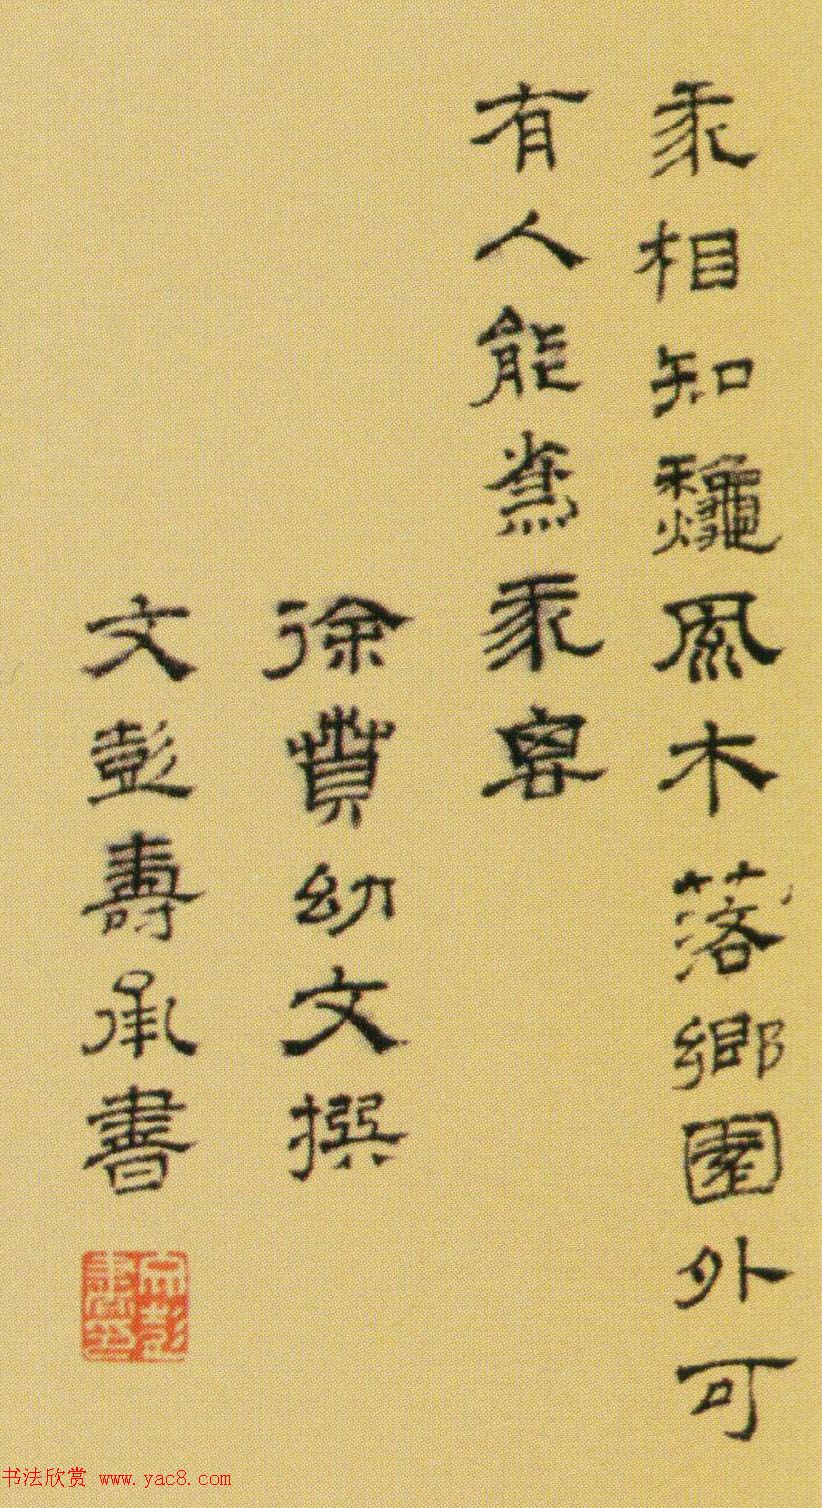 相知龝風木落鄉園外可
有人能
徐賁幼文撰
文彭壽承書
文彭
书法欣赏 www.yac8.com